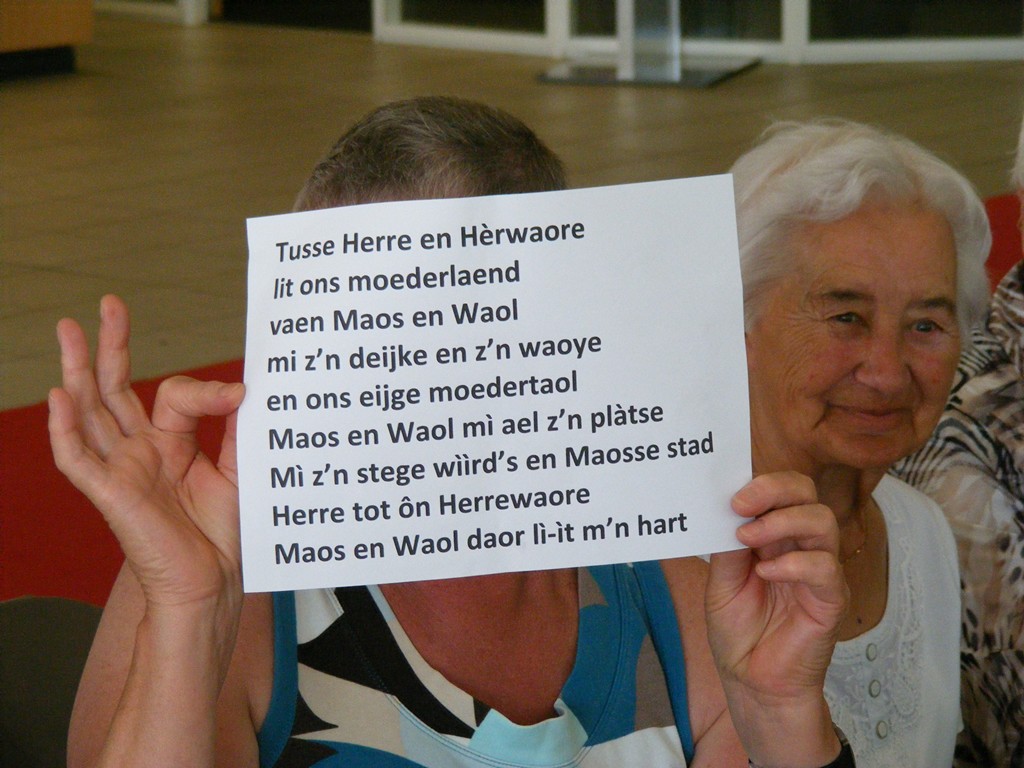 Tusse Herre en Hèrwaore
lit ons moederlaend
vaen Maos en Waol
mi z'n deijke en z'n waoye
en ons eijge moedertaol
Maos en Waol mì ael z'n plàtse
Mì z'n stege wìird's en Maosse stad
Herre tot ôn Herrewaore
Maos en Waol daor lì-ìt m'n hart